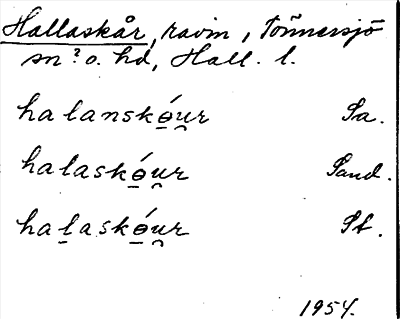 Hallaskår, ravin, Tönnersjö
sn? o. hd, Hall. l.
halanskó̱u̯r Sa.
halaskó̱u̯r Sand.
ha̱laskó̱u̯r St.
1954.